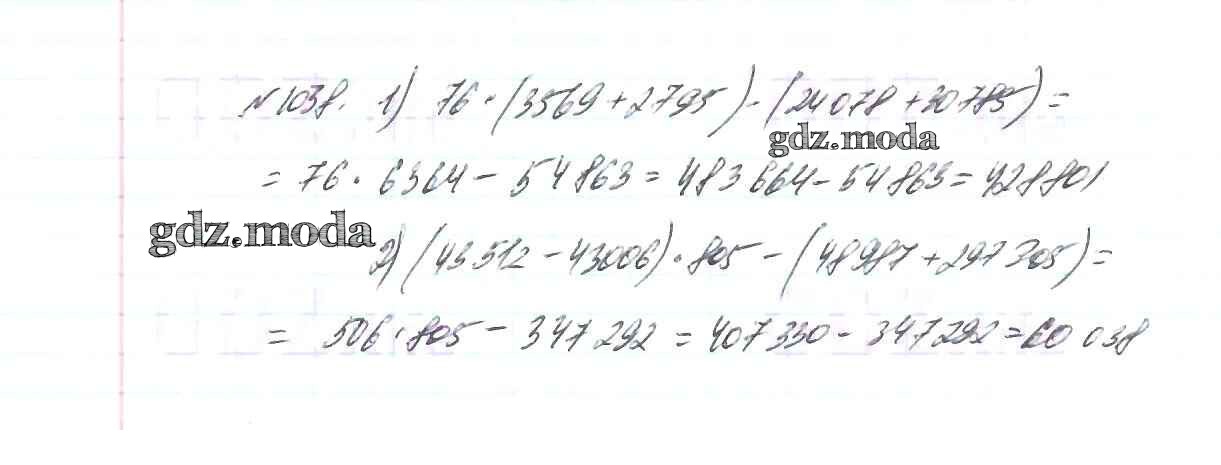 №1038. 1) 76·(3569+2795)-(24078+30785)=
gdz.moda
=76·6364-54863=483664-54863=428801
gdz.moda
2) (43512-43006)·805-(48987+297305)=
=506·805-347292=407330-347292=60038